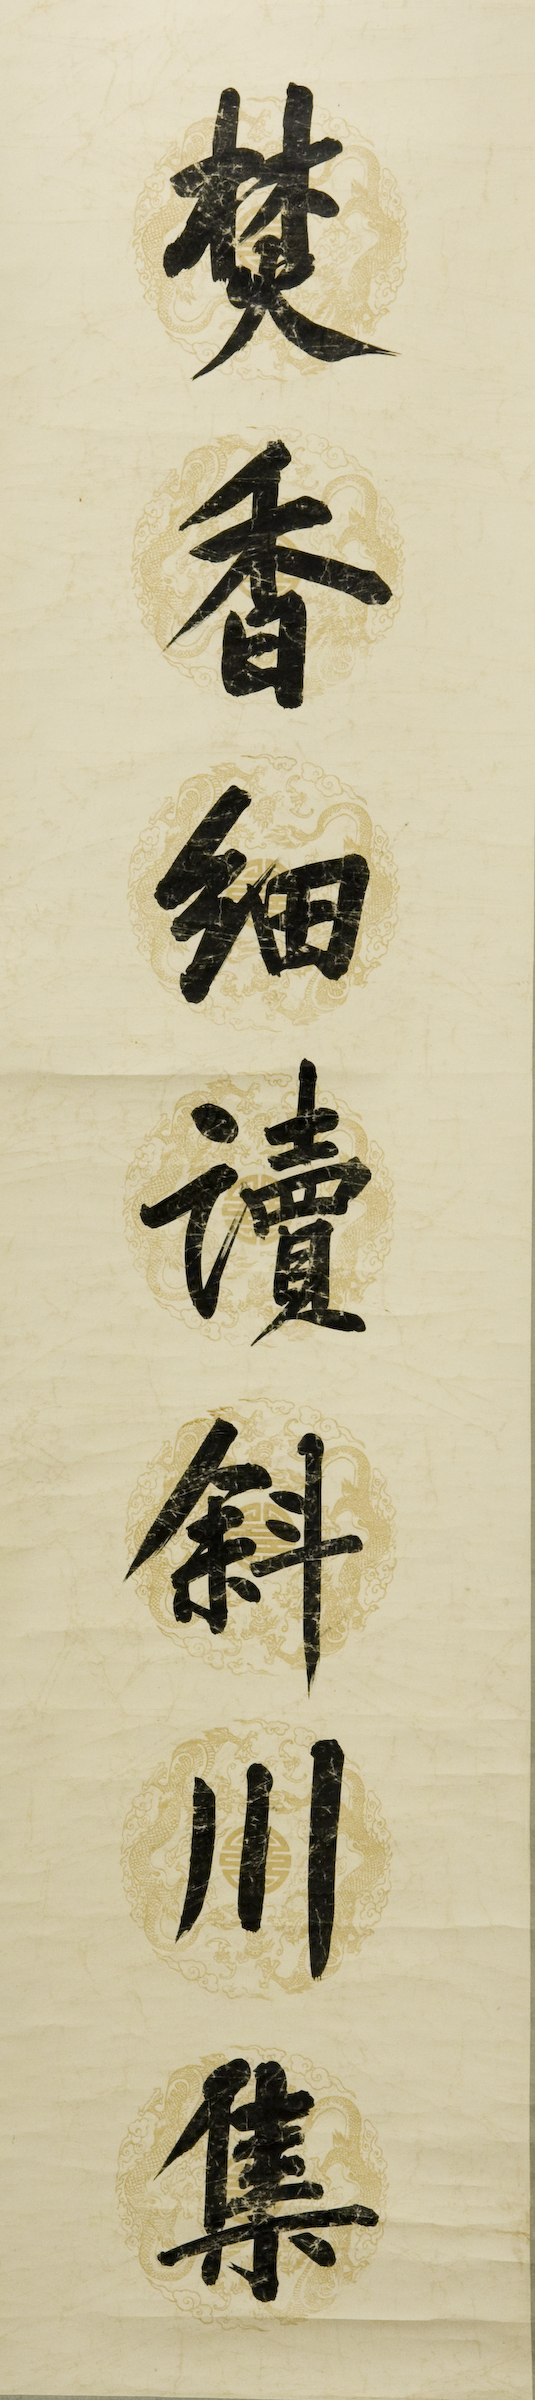 焚香細讀斜川集